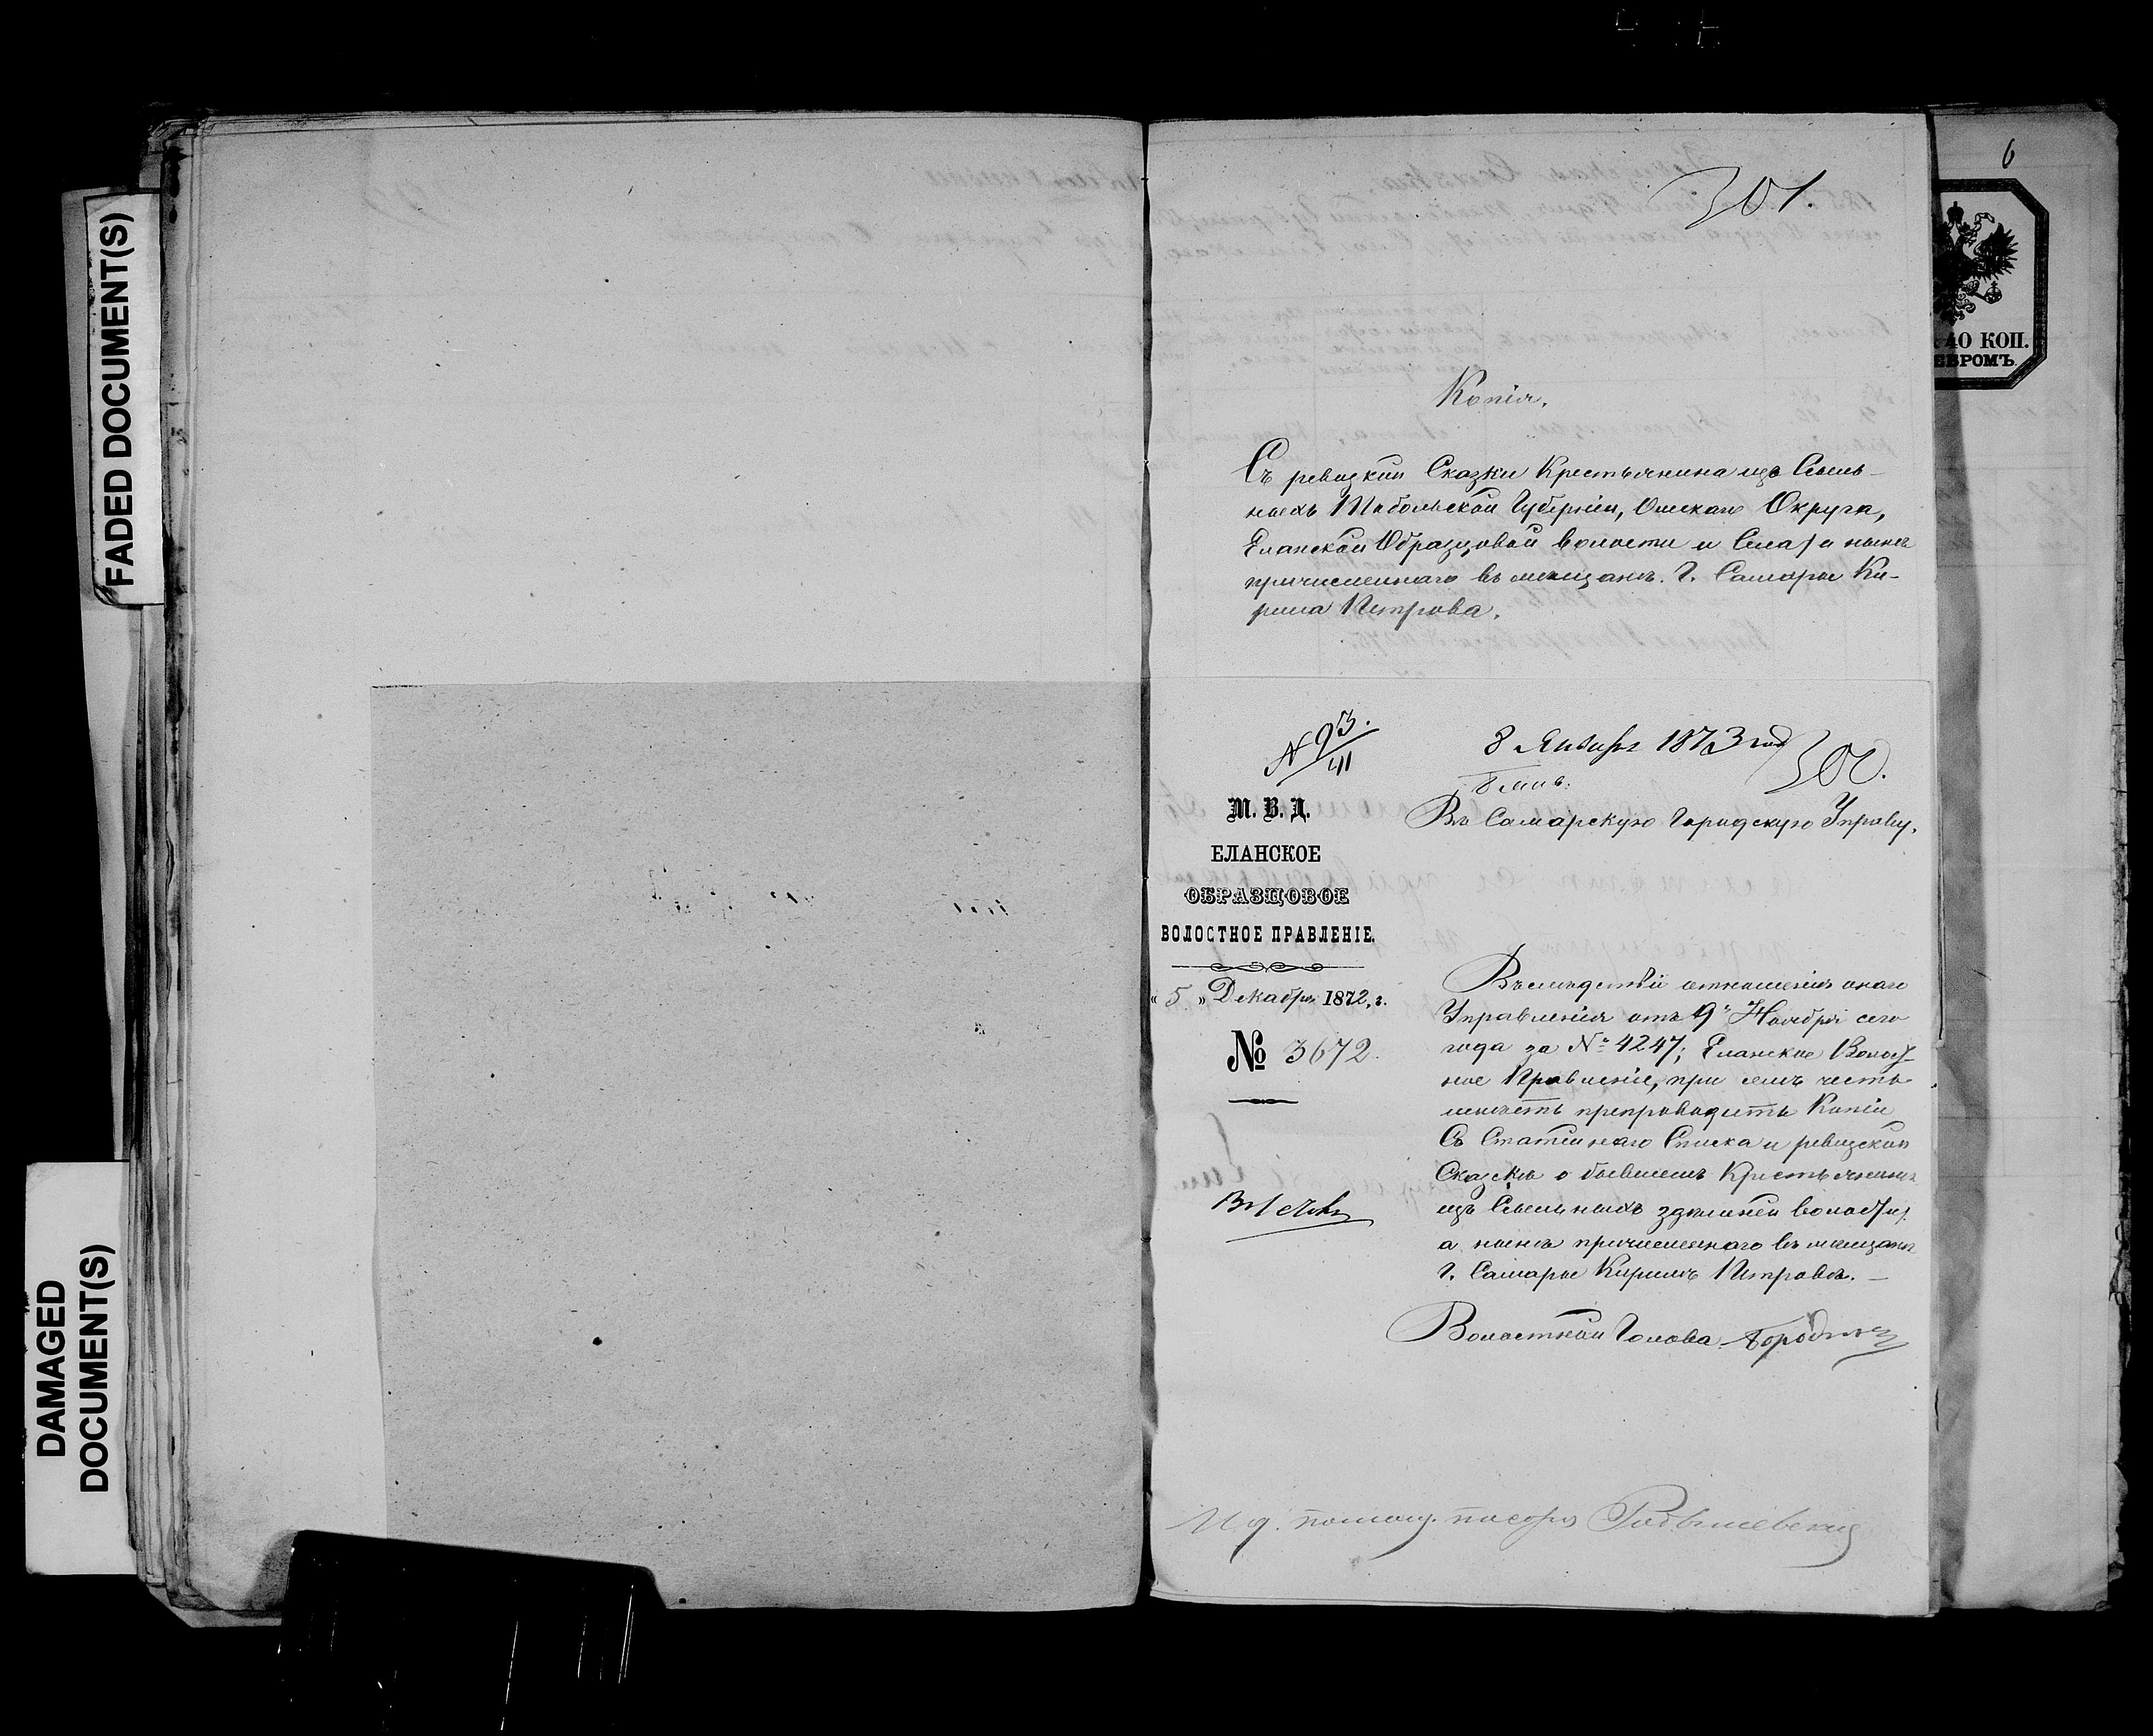 FADED DOCUMENT(S)
DAMAGED
DOCUMENT(S)
6
40 КОП.
301.
Копія.
Съ ревизкой Сказки Крестьянина изъ Ссыль-
ныхъ Тобольской Губерніи, Омскаго Округа,
Еланской Образцовой волости и Села, а нынѣ
причисленнаго въ мещанѣ. Г. Самары Ки-
рила Петрова.
8 Января 1873 год
300.
М. В. Д.
ЕЛАНСКОЕ
ОБРАЗЦОВОЕ
ВОЛОСТНОЕ ПРАВЛЕНІЕ.
« 5 » Декабря 1872, г.
№ 3672.
Въ Самарскую Городскую Управу.
Вслѣдствіи отношенія онаго
Управленія отъ 9 Ноября сего
года за № 4247; Еланское Волост-
ное Правленіе, при семъ честь
имѣетъ препроводить Копіи
Съ Статейнаго Списка и ревизской
Сказки о бывшемъ Крестьянинѣ
изъ Ссыльныхъ здѣшней волости,
а нынѣ причисленнаго въ мещанѣ
г. Самары Кирилѣ Петровѣ. —
Волостной Голова
И д. помощ. писаря